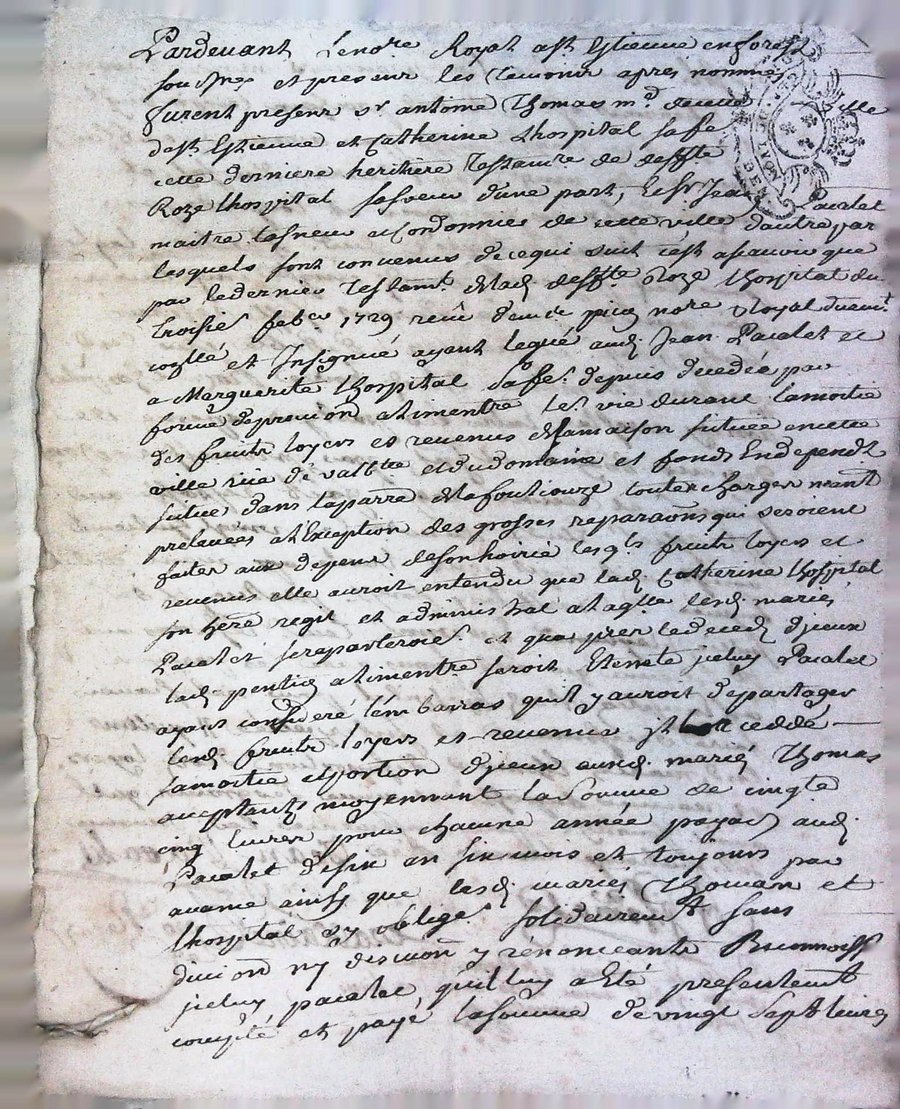 Pardevant Lenore Royal a st Estienne en forest
sousne et presens les temoins apres nommes
furent presens sr antoine Thomas md ville
de st Estienne et Catherine Lhospital sa fe
cette derniere heritiere Testamre de deffte
Roze Lhospital sa soeur d'une part, le sr Jean Pacalet
maitre et Cordonnier de cette ville d'autre part
lesquels sont convenus de ce qui suit c'est a scavoir que
par le dernier Testamt de lad deffte Roze Lhospital du
troisie feber 1729 recu nore Royal
conllé et Insignué ayant legué aud. Jean Pacalet et
a Marguerite Lhospital sa fe. depuis decedée par
forme de pension alimentre leur vie durant la moitié
des fruits loyers et revenus de la maison située en cette
ville rue de et du domaine et fonds En dependt
situé dans la parre de la fouliouze toutes charges
prelevees a l'Exception des grosses reparaons qui seroient
faites aux depens de son hoirie lesqls fruits loyers et
revenus elle auroit entendu que lad. Catherine Lhospital
son here regit et administrat lesd. mariés
Pacalet et que le deced d'jceux
lad. pention alimentre seroit Eteinte jceluy Pacalet
ayant consideré l'embarras qu'il y auroit de partager
lesd. fruits loyers et revenus jl a ceddé
sa moitié et portion d'jceux ausd. mariés Thomas
acceptants moyennant la somme de cinqte
cinq livres pour chacune année payab aud.
Pacalet de six en six mois et toujours par
avance ainsy que lesd. mariés Thomas et
Lhospital s'y oblige solidairemt sans
division ny discuon y renonceants
jceluy pacalet qu'il luy a Eté presentemt
compté et payé la somme de vingt sept livres